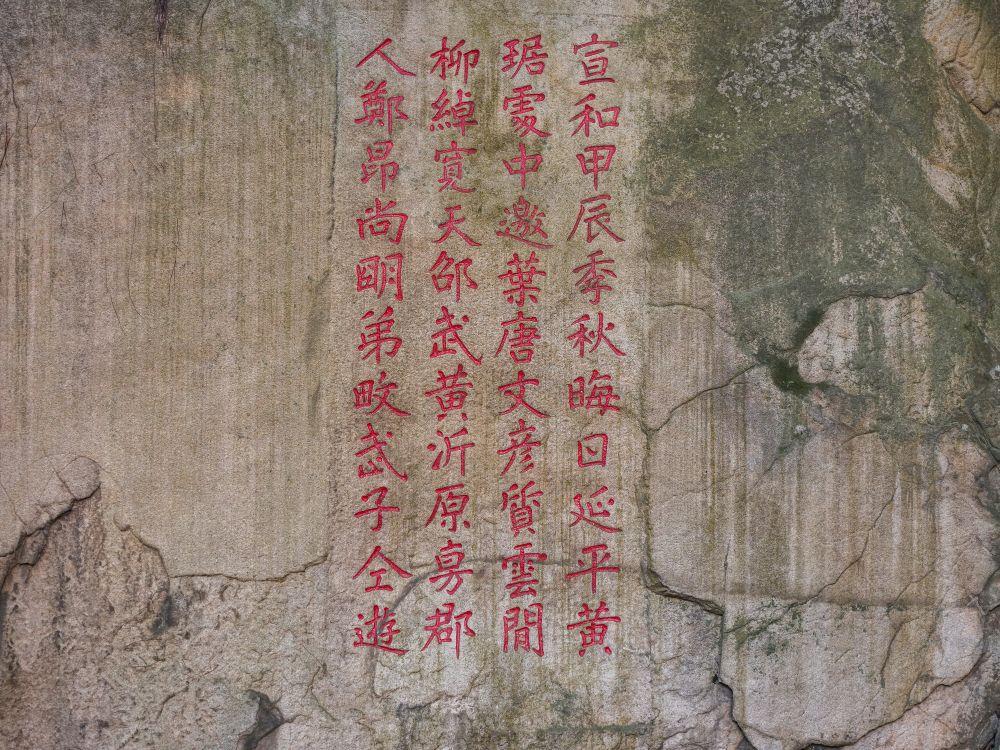 宣和甲辰季秋晦日延平黄
琚雯中邀葉唐文彦質雲間
柳綽寬天邵武黄沂原嘉郡
人鄭昂尚明弟畋武子仝遊